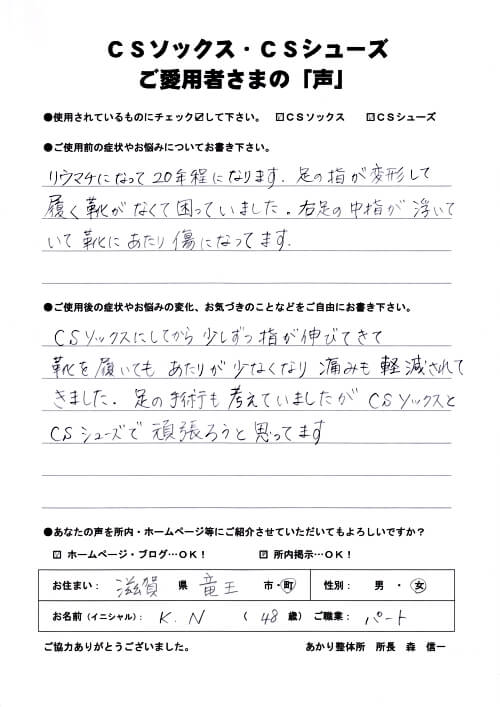 CSソックス・CSシューズ
ご愛用者さまの「声」
●使用されているものにチェック☑して下さい。 ☑CSソックス ☑CSシューズ
●ご使用前の症状やお悩みについてお書き下さい。
リウマチになって20年程になります。足の指が変形して
履く靴がなくて困っていました。右足の中指が浮いて
いて靴にあたり傷になってます.
●ご使用後の症状やお悩みの変化、お気づきのことなどをご自由にお書き下さい。
CSソックスにしてから少しずつ指が伸びてきて
靴を履いてもあたりが少なくなり痛みも軽減されて
きました。足の手術も考えていましたがCSソックスと
CSシューズで頑張ろうと思ってます
●あなたの声を所内・ホームページ等にご紹介させていただいてもよろしいですか？
☑ホームページ・ブログ…OK！ ☑所内掲示…OK！
お住まい： 滋賀 県 竜王 市・町 性別： 男 ・ 女
お名前（イニシャル）： K.N （ 48 歳） ご職業： パート
ご協力ありがとうございました。 あかり整体所 所長 森 信一